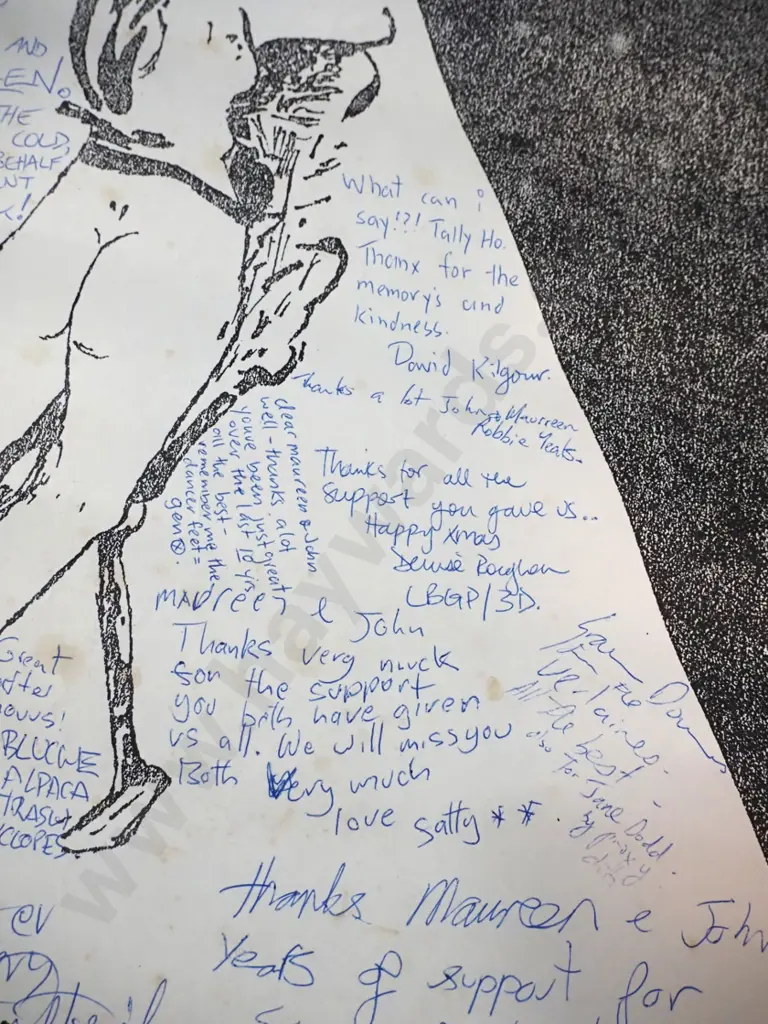 AND
EN.
THE
COLD,
BEHALF
NT
What can i
say!?! Tally Ho.
Thanx for the
memory's and
kindness.
David Kilgour.
Thanks a lot John & Maureen
Robbie Yeats.
dear maureen & John
well - thanks a lot
youve been just great
over the last 10 yrs
all the best -
remember me the
dancer feet =
gen
Thanks for all the
support you gave us..
Happy xmas
Denise Roughan
LBGP/3D.
Maureen & John
Thanks very muck
for the support
you both have given
us all. We will miss you
Both very much
love Satty **.
Great
after
BLUCHE
ALPACA
THRASH
CLOPES
from the
Verlaines.
All the best -
also for Jane Dodd.
by proxy
thanks Maureen & John
Years of support for
www.haywards.